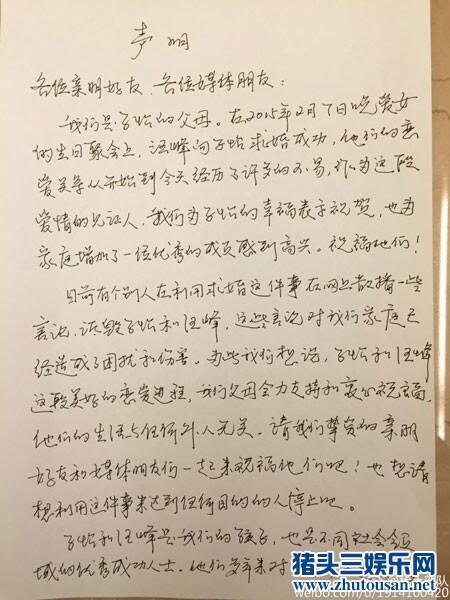 声明
各位亲朋好友、各位媒体朋友：
我们是子怡的父母。在2015年2月7日晚爱女
的生日聚会上，汪峰向子怡求婚成功，他们的恋
爱关系从开始到今天经历了许多的不易，作为这段
爱情的见证人，我们为子怡的幸福表示祝贺，也为
家庭增加了一位优秀的成员感到高兴。祝福他们！
目前有个别人在利用求婚这件事在网上散播一些
言论，诋毁子怡和汪峰，这些言论对我们家庭已
经造成了困扰和伤害。为此我们想说，子怡和汪峰
这段美好的恋爱进程，我们父母全力支持和衷心祝福，
他们的生活与任何外人无关。请我们挚爱的亲朋
好友和媒体朋友们一起来祝福他们吧！也想请
想利用这件事来达到任何目的的人停止吧。
子怡和汪峰是我们的孩子，也是不同社会领
域的优秀成功人士。他们多年来对
猪头三娱乐网
www.zhutousan.net
weibo.com/u/1914100420